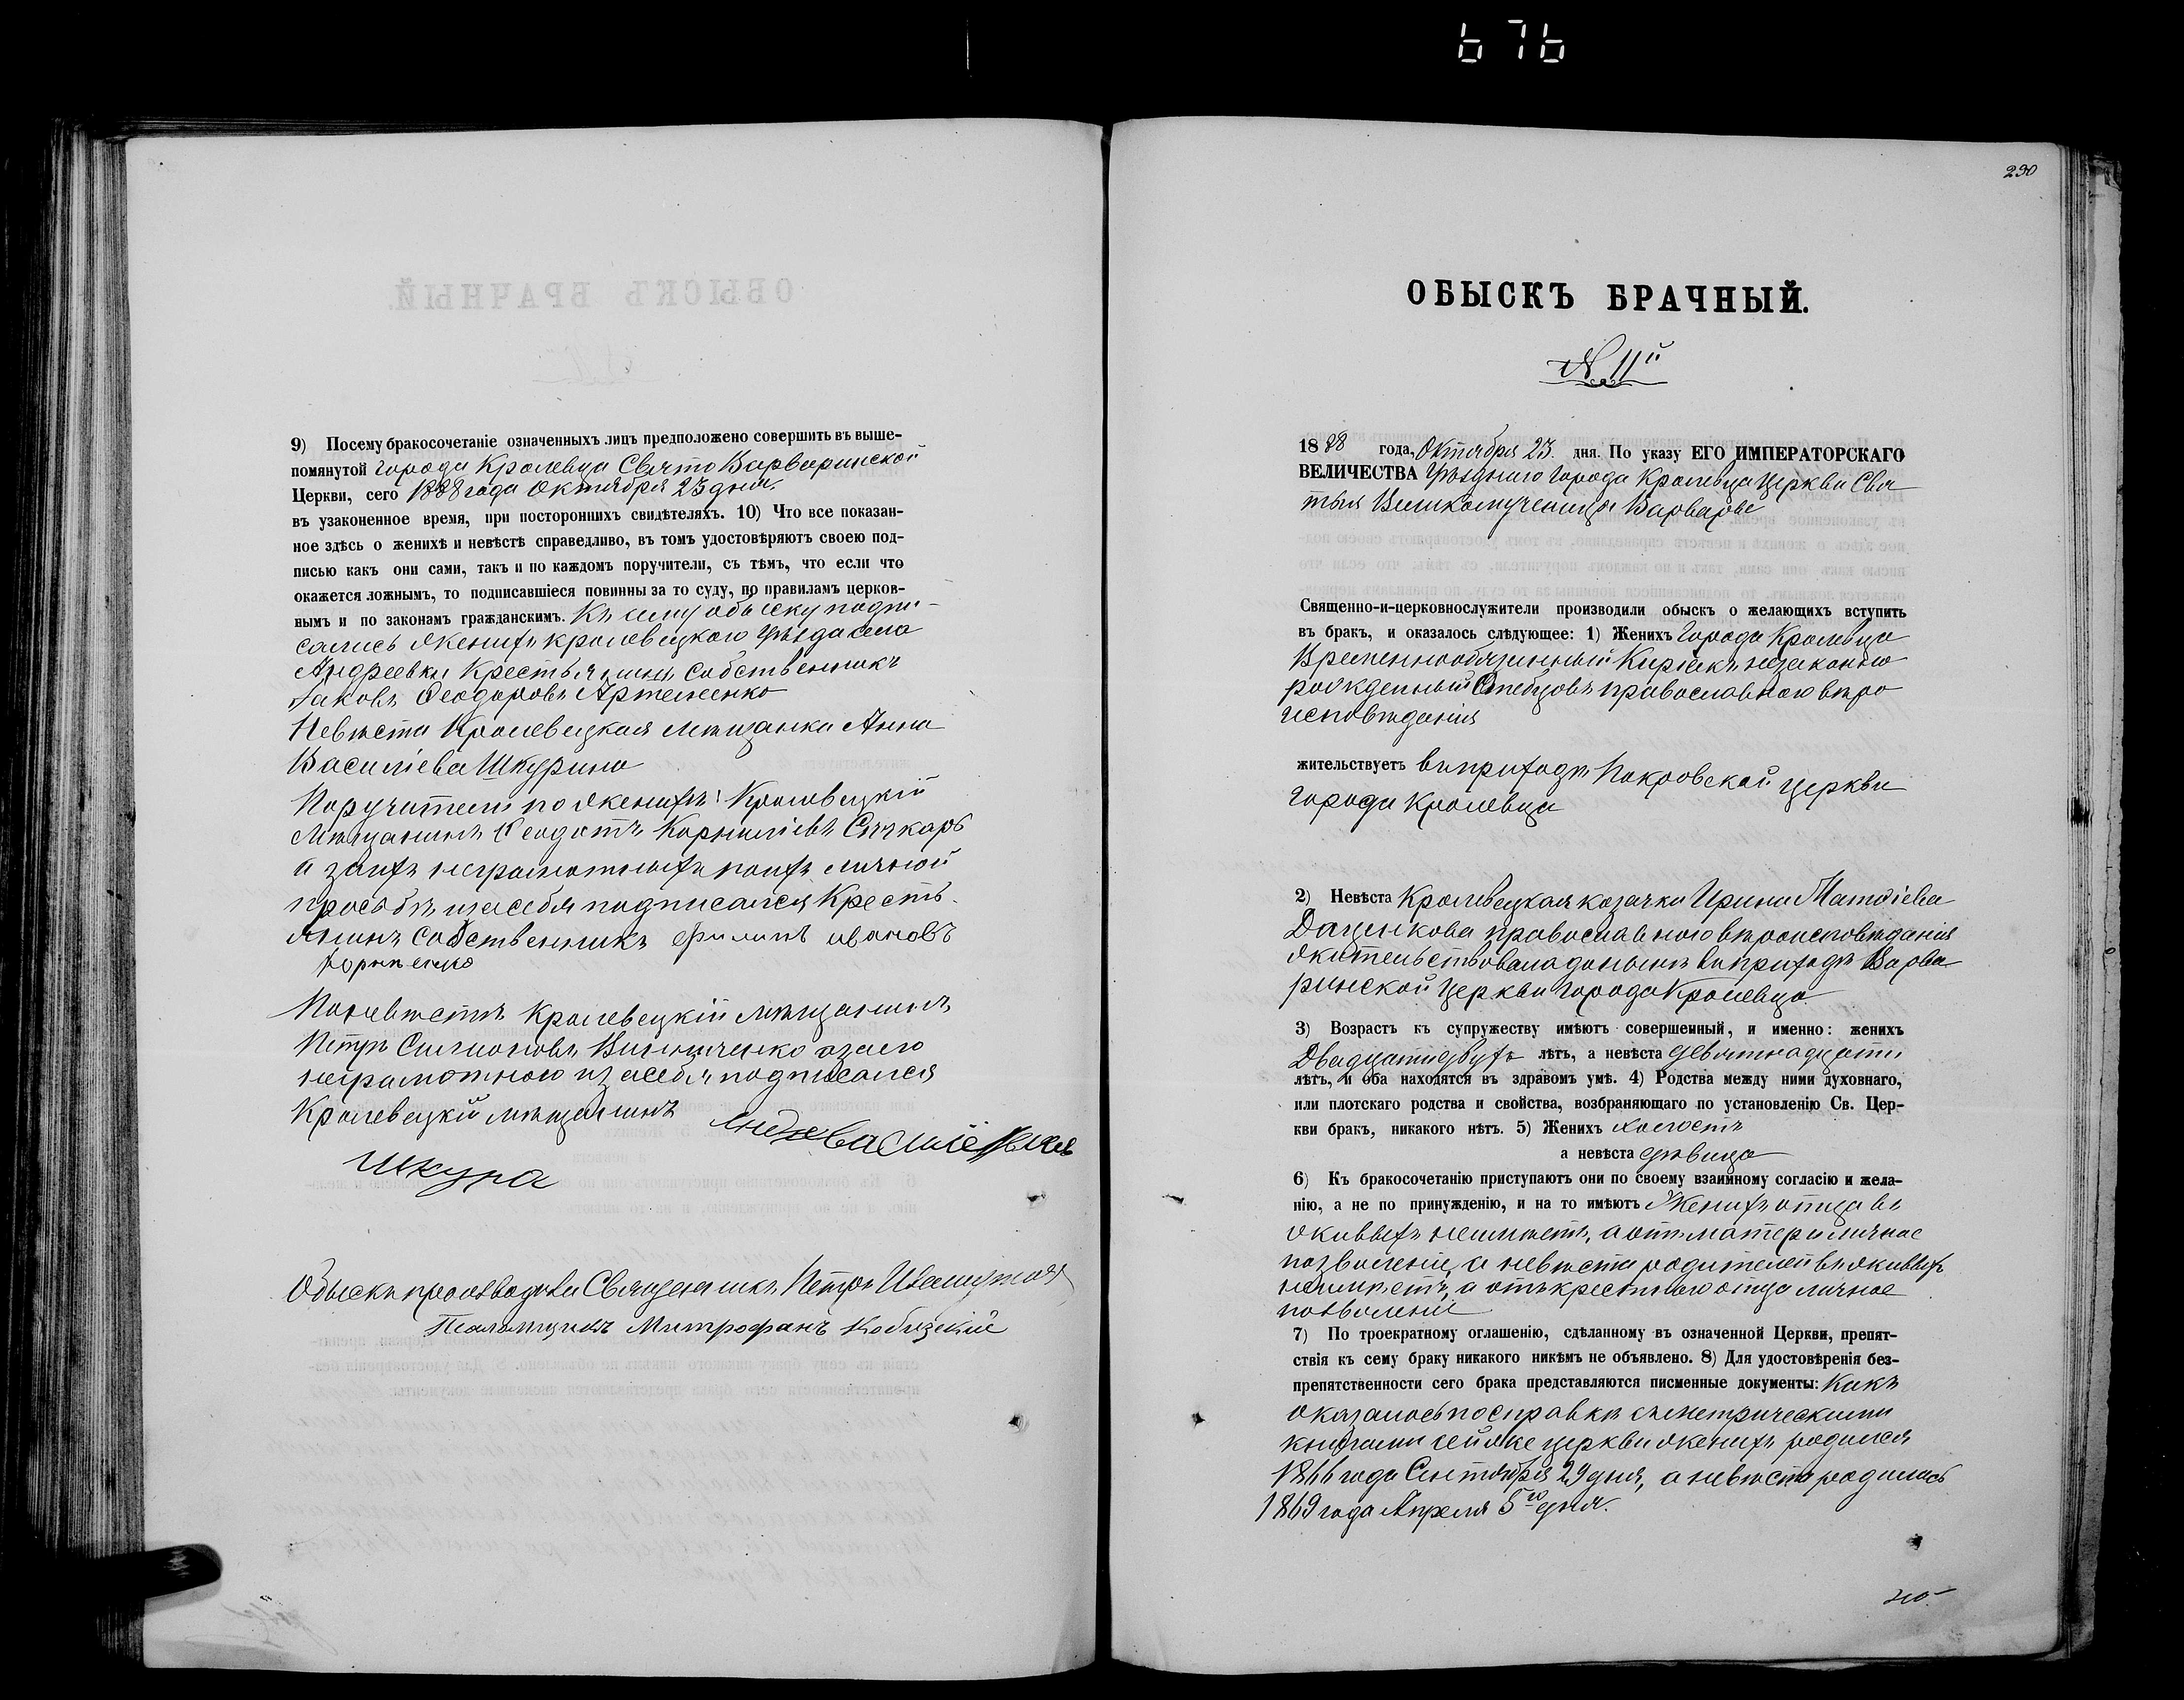 676
9) Посему бракосочетаніе означенныхъ лицъ предположено совершить въ выше-
помянутой города Кролевца Свято Варваринской
Церкви, сего 1888 года Октября 23 дня.
въ узаконенное время, при постороннихъ свидѣтеляхъ. 10) Что все показан-
ное здѣсь о женихѣ и невѣстѣ справедливо, въ томъ удостовѣряютъ своею под-
писью какъ они сами, такъ и по каждомъ поручители, съ тѣмъ, что если что
окажется ложнымъ, то подписавшіеся повинны за то суду, по правиламъ церков-
нымъ и по законамъ гражданскимъ. Къ сему обыску подпи-
сались женихъ Кролевецкого уѣзда села
Андреевки Крестьянинъ собственникъ
Іаковъ Ѳеодоровъ Артеменко
Невѣста Кролевецкая мѣщанка Анна
Василіева Шкурина
Поручители по женихѣ: Кролевецкій
Мѣщанинъ Ѳеодотъ Корниліевъ Сичкарь
а заихъ неграмотныхъ поихъ личной
просьбѣ изасебя подписался Кресть-
янинъ Собственникъ Филипъ ивановъ
По невѣстѣ Кролевецкій мѣщанинъ
Петръ Симоновъ азаего
неграмотного изасебя подписался
Кролевецкій мѣщанинъ
Шкура
Обыскъ производили Священникъ Петръ
Псаломщикъ Митрофанъ Кобизскій
230
ОБЫСКЪ БРАЧНЫЙ.
N 11й
1888 года, Октября 23. дня. По указу ЕГО ИМПЕРАТОРСКАГО
ВЕЛИЧЕСТВА Уѣзднаго города Кролевца Церкви Свя
тыя Великомученицы Варвары
Священно-и-церковнослужители производили обыскъ о желающихъ вступить
въ бракъ, и оказалось слѣдующее: 1) Женихъ города Кролевца
Временнообязанный Киріакъ незаконно
рожденный Стебцовъ православного вѣро
исповѣданія
жительствуетъ въ приходѣ Покровской церкви
города Кролевца
2) Невѣста Кролевецкая козачка Ирина Матѳіева
Даценкова православного вѣроисповѣданія
жительствовала донынѣ въ приходѣ Варва
ринской Церкви города Кролевца
3) Возрастъ къ супружеству имѣютъ совершенный, и именно: женихъ
Двадцатидвухъ лѣтъ, а невѣста девятнадцати
лѣтъ, и оба находятся въ здравомъ умѣ. 4) Родства между ними духовнаго,
или плотскаго родства и свойства, возбраняющаго по установленію Св. Цер-
кви бракъ, никакого нѣтъ. 5) Женихъ холостъ
а невѣста дѣвица
6) Къ бракосочетанію приступаютъ они по своему взаимному согласію и жела-
нію, а не по принужденію, и на то имѣютъ Женихъ отца въ
живыхъ неимѣетъ, а отъ матери личное
позволеніе, а невѣста родителей въ живыхъ
неимѣетъ, а отъ крестнаго отца личное
позволеніе
7) По троекратному оглашенію, сдѣланному въ означенной Церкви, препят-
ствія къ сему браку никакого никѣмъ не объявлено. 8) Для удостовѣренія без-
препятственности сего брака представляются писменные документы: Какъ
оказалось по справкѣ съ метрическими
книгами сей же церкви женихъ родился
1866 года Сентября 29 дня, а невѣста родилась
1869 года Апреля 5го дня.